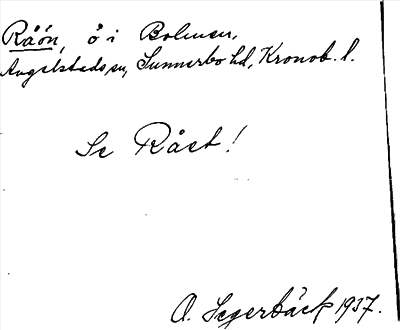 Råön, ö i Bolmen,
Angelstads sn, Sunnerbo hd, Kronob. l.
Se Rået!
O. Segerbäck 1937.